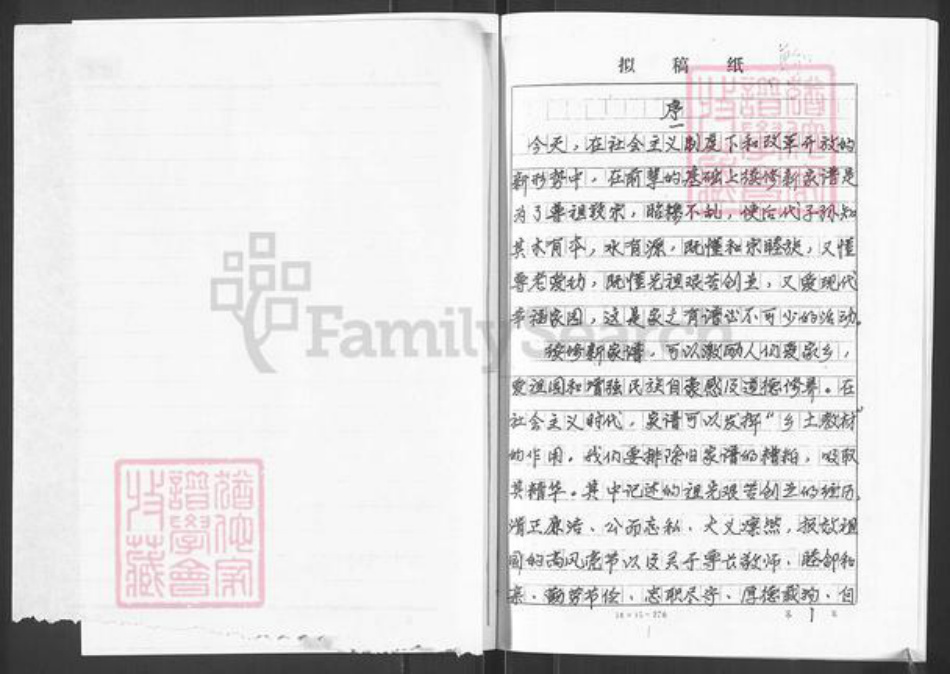 FamilySearch
猶他家
譜學會
收藏
拟稿纸
猶他家
譜學會
收藏
序
今天，在社会主义制度下和改革开放的
新形势中，在前辈的基础上接修新家谱是
为了尊祖敬宗，昭穆不乱，使后代子孙知
其木有本，水有源，既懂和宗睦族，又懂
尊老爱幼，既懂先祖艰苦创业，又爱现代
幸福家园，这是家之有谱必不可少的活动。
接修新家谱，可以激励人们爱家乡，
爱祖国和增强民族自豪感及道德修养。在
社会主义时代，家谱可以发挥“乡土教材”
的作用，我们要排除旧家谱的糟粕，吸取
其精华。其中记述的祖先艰苦创业的经历，
清正廉洁、公而忘私、大义凛然，报效祖
国的高风亮节以及关于尊长敬师、睦邻和
亲、勤劳节俭、忠职尽守、厚德载物、自
18×15=270
第 1 页